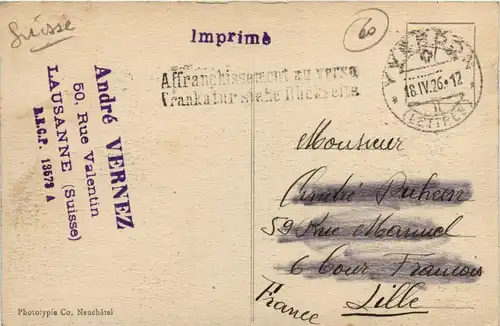 Suisse
Imprimé
60
Affranchissement au verso
Frankatur siehe Rückseite
18.IV.26.12
(LETTRES)
André VERNEZ
50, Rue Valentin
LAUSANNE (Suisse)
Monsieur
André
59 Rue Manuel
6 Cour Francois
Lille
France
Phototypie Co, Neuchâtel